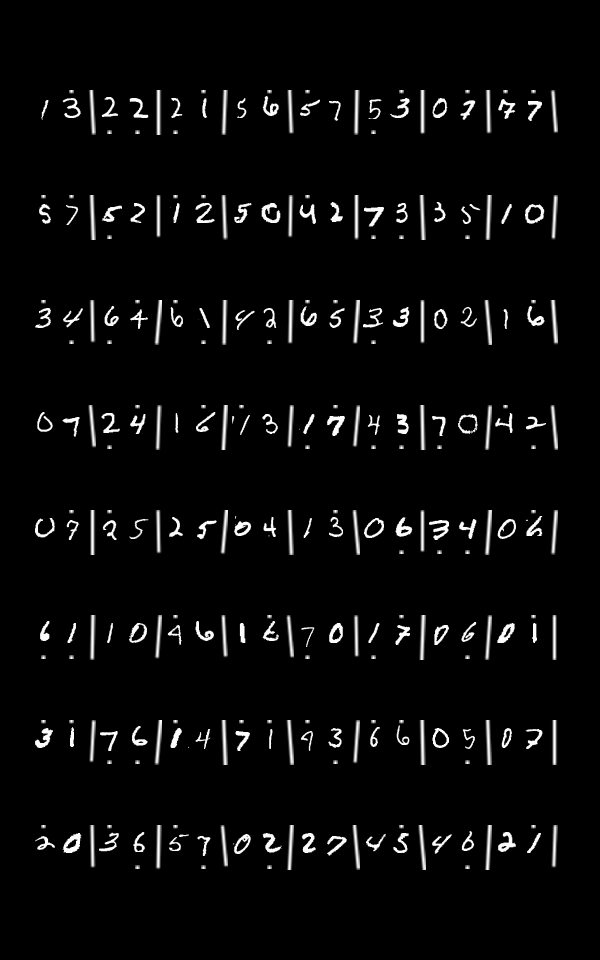 1 3̇ | 2̣ 2̣ | 2̣ 1̇ | 5 6̇ | 5̇ 7 | 5̣ 3̇ | 0 7̇ | 7̇ 7̇ |
5̇ 7̇ | 5̣ 2 | 1̇ 2̇ | 5 0 | 4̇ 2 | 7̣ 3̣ | 3 5̣ | 1 0 |
3̇ 4̣ | 6̣ 4̇ | 6̇ 1̣ | 4 2̣ | 6̇ 5̇ | 3̣ 3 | 0 2 | 1 6̇ |
0 7 | 2 4̇ | 1 6̇ | 1̇ 3 | 1̣ 7̣ | 4 3̣ | 7̇ 0 | 4̇ 2̣ |
0 7̇ | 2̇ 5 | 2 5 | 0 4 | 1 3̇ | 0 6̣ | 3̣ 4̣ | 0 6̇ |
6̣ 1̣ | 1 0 | 4̇ 6 | 1 6̇ | 7̣ 0 | 1̣ 7̇ | 0 6̣ | 0 1̇ |
3̇ 1̇ | 7̣ 6̣ | 1̇ 4 | 7̇ 1̇ | 4̇ 3̣ | 6̇ 6̇ | 0 5̣ | 0̇ 7 |
2̇ 0 | 3̇ 6̣ | 5̇ 7̣ | 0 2̣ | 2 7 | 4 5̇ | 4 6̣ | 2 1̇ |